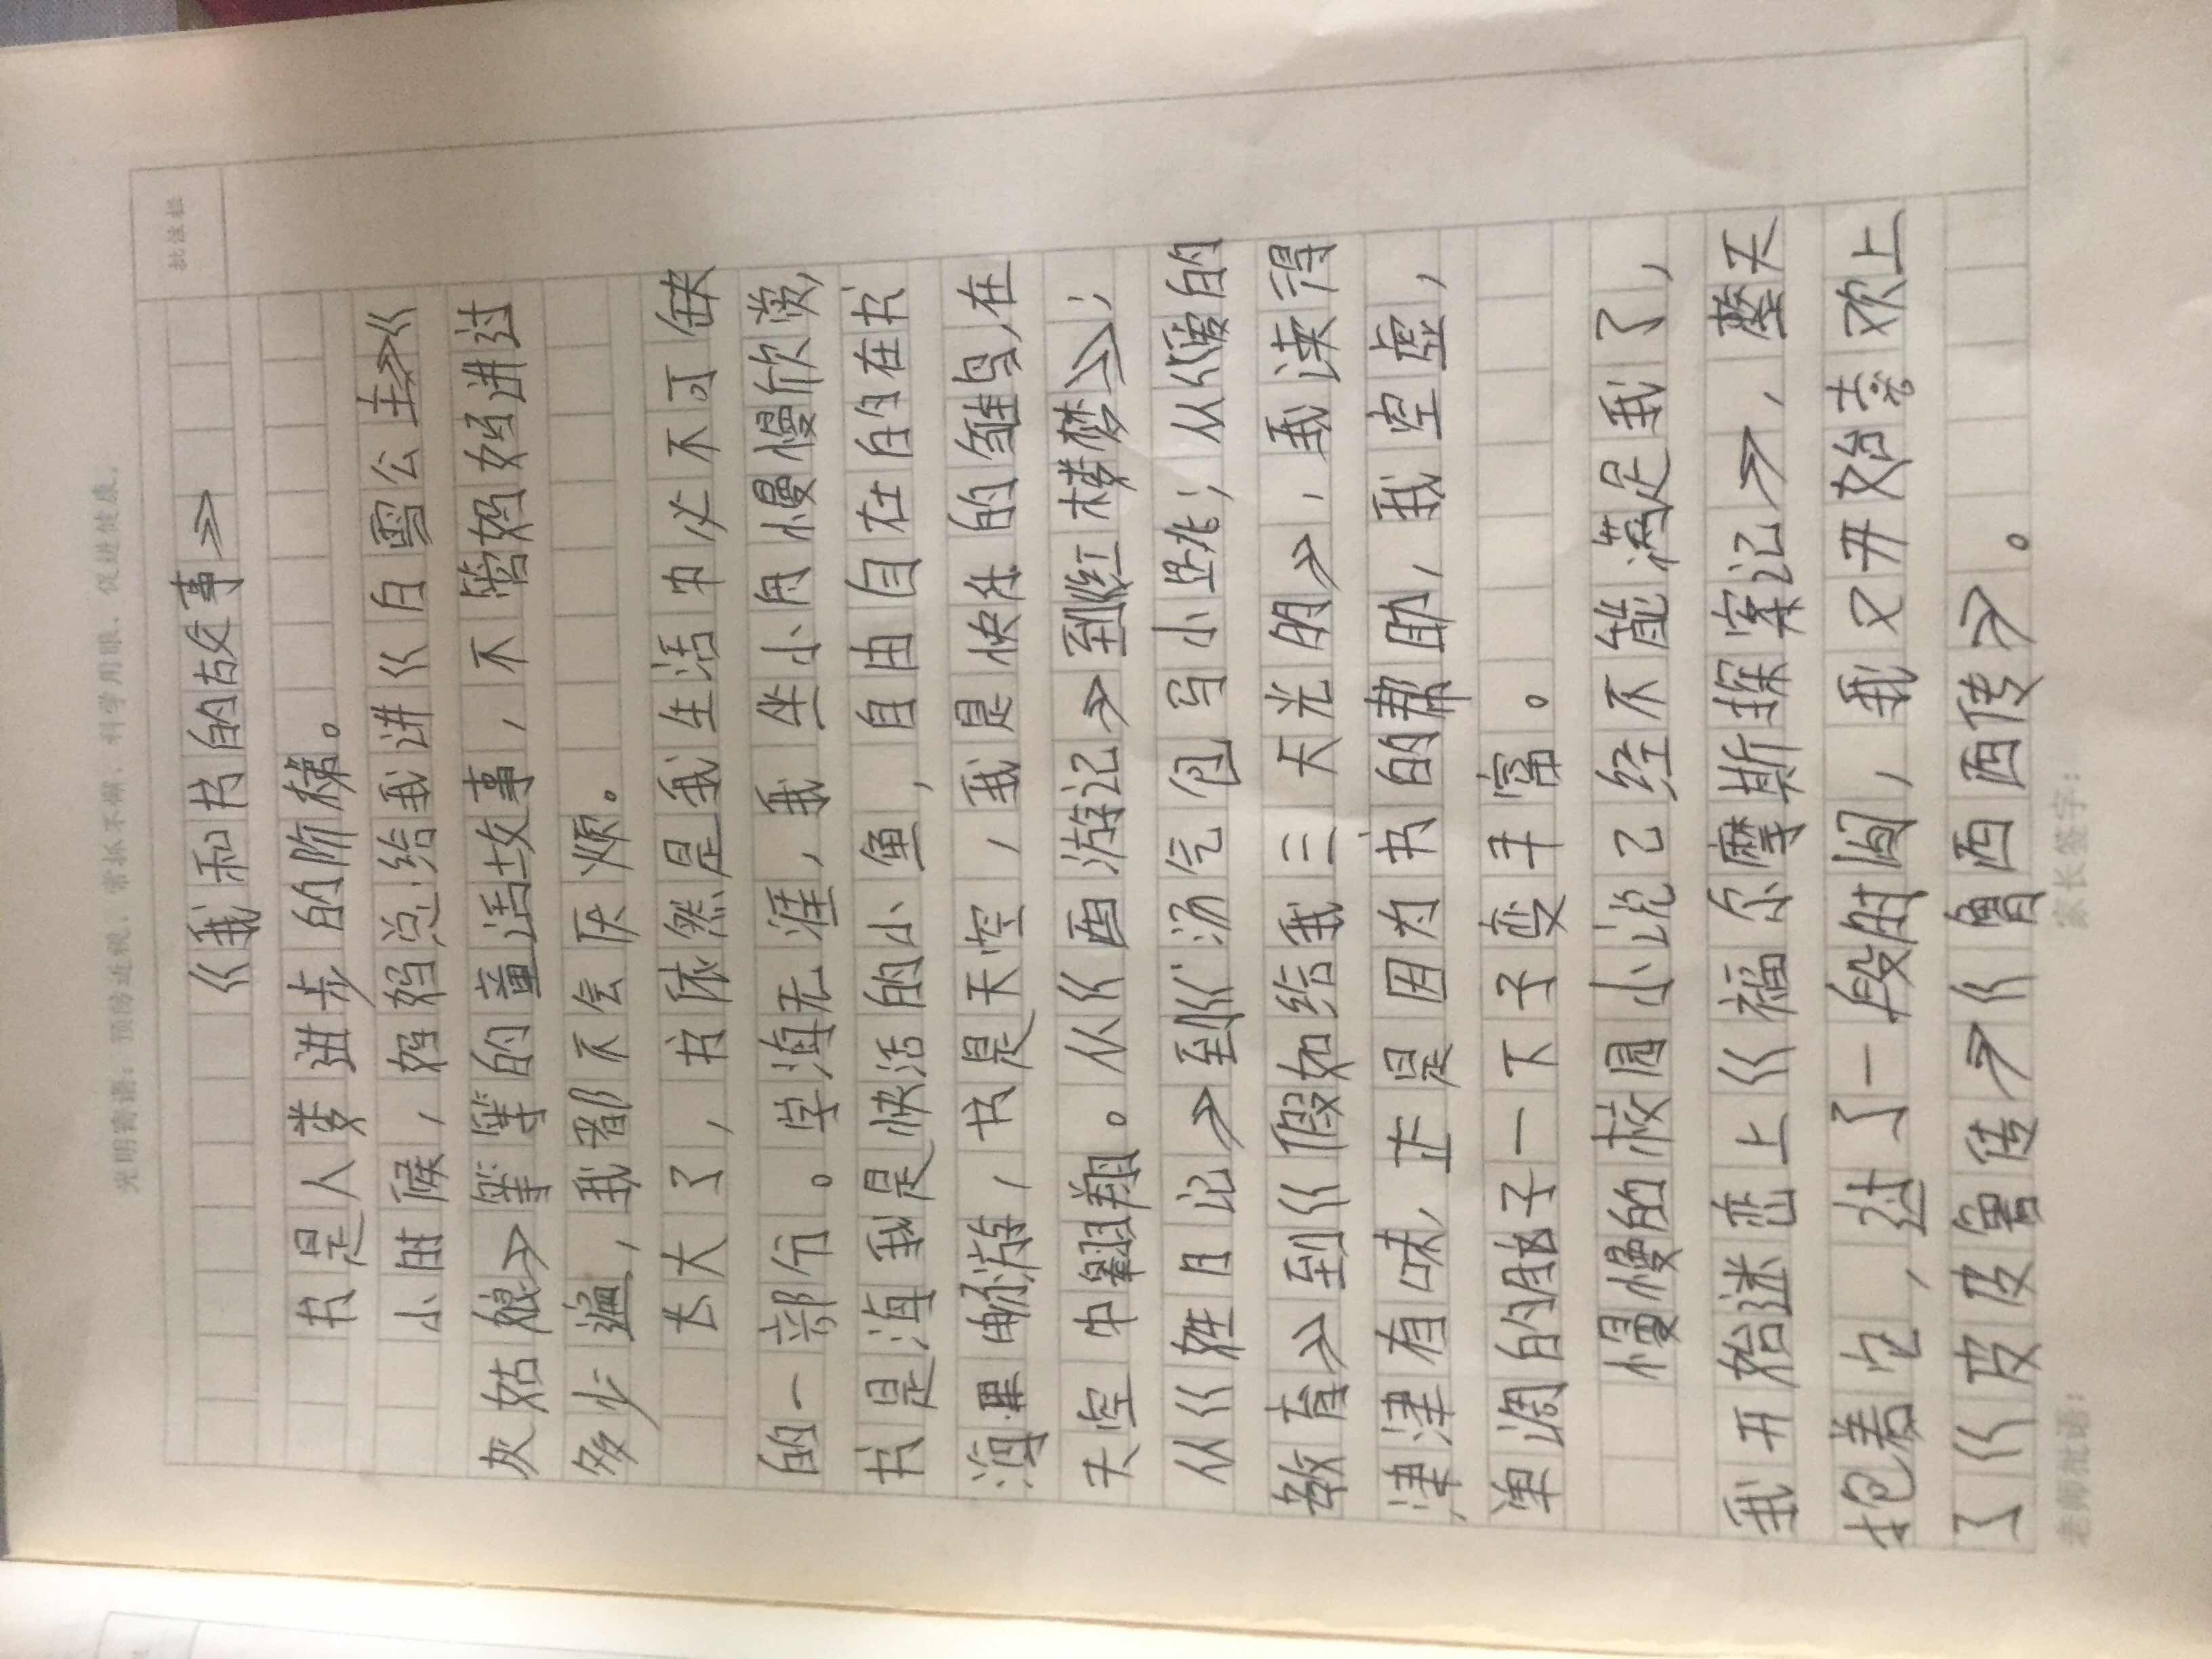 光明寄语：预防近视，常抓不懈，科学用眼，促进健康。
批注栏
《我和书的故事》
书是人类进步的阶梯。
小时候，妈妈总给我讲《白雪公主》《
灰姑娘》等等的童话故事，不管妈妈讲过
多少遍，我都不会厌烦。
长大了，书依然是我生活中必不可缺
的一部分。学海无涯，我坐小舟慢慢欣赏，
书是海我是快活的小鱼，自由自在的在书
海里畅游，书是天空，我是快乐的雏鸟，在
天空中翱翔。从《西游记》到《红楼梦》；
从《姓日记》到《汤气包马小跳；从《爱的
教育》到《假如给我三天光明》，我读得
津津有味，正是因为书的帮助，我空虚，
单调的脑子一下子变丰富。
慢慢的校园小说已经不能满足我了，
我开始迷恋上《福尔摩斯探案记》，整天
抱着它，过了一段时间，我又开始喜欢上
了《皮皮鲁传》《鲁西西传》。
老师批语：
家长签字：